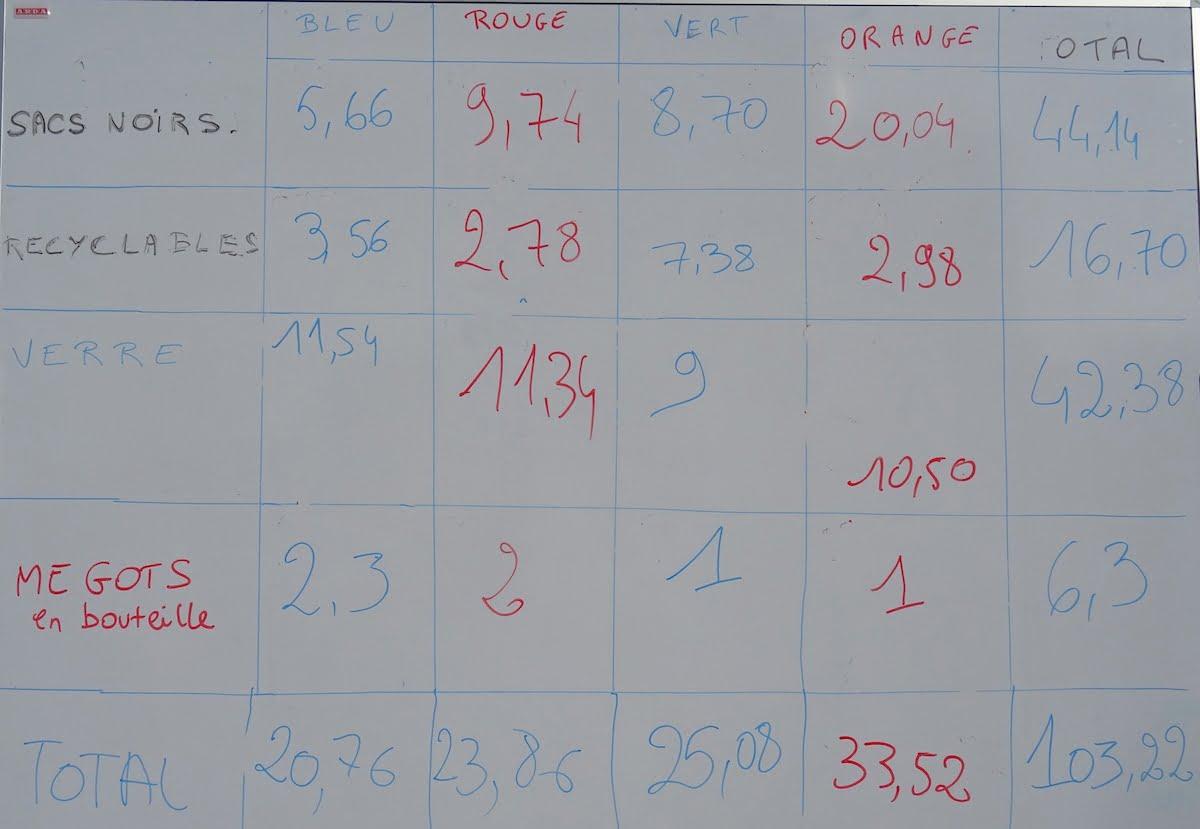 BLEU ROUGE VERT ORANGE TOTAL
SACS NOIRS. 5,66 9,74 8,70 20,04 44,14
RECYCLABLES 3,56 2,78 7,38 2,98 16,70
VERRE 11,54 11,34 9 10,50 42,38
MEGOTS 2,3 2 1 1 6,3
en bouteille
TOTAL 20,76 23,86 25,08 33,52 103,22